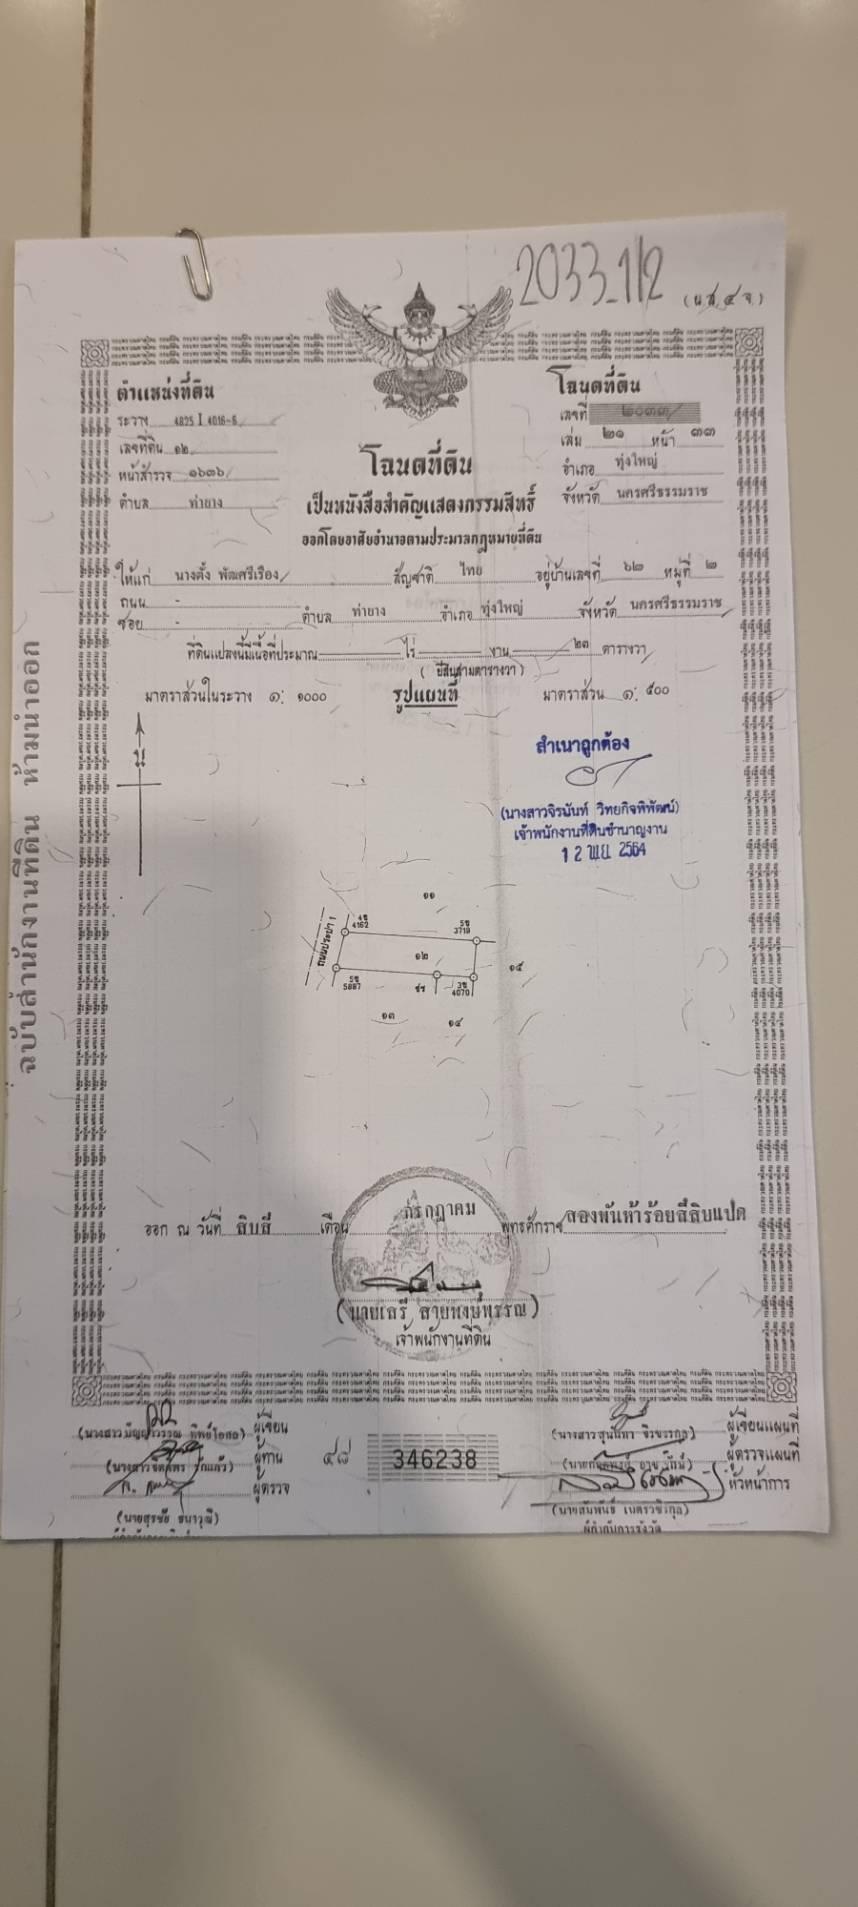 2033-1/2
(น.ส.๔ จ.)
ตำแหน่งที่ดิน
ระวาง 4825 I 4016-6
เลขที่ดิน ๑๒
หน้าสำรวจ ๑๖๓๖
ตำบล ท่ายาง
โฉนดที่ดิน
เลขที่ ๒๐๓๓
เล่ม ๒๑ หน้า ๓๓
อำเภอ ทุ่งใหญ่
จังหวัด นครศรีธรรมราช
โฉนดที่ดิน
เป็นหนังสือสำคัญแสดงกรรมสิทธิ์
ออกโดยอาศัยอำนาจตามประมวลกฎหมายที่ดิน
ให้แก่ นางตั้ง พัฒศรีเรือง สัญชาติ ไทย อยู่บ้านเลขที่ ๖๒ หมู่ที่ ๒
ถนน -
ซอย - ตำบล ท่ายาง อำเภอ ทุ่งใหญ่ จังหวัด นครศรีธรรมราช
ที่ดินแปลงนี้มีเนื้อที่ประมาณ ไร่ งาน ๒๓ ตารางวา
( ยี่สิบสามตารางวา )
มาตราส่วนในระวาง ๑: ๑๐๐๐ รูปแผนที่ มาตราส่วน ๑: ๕๐๐
น
สำเนาถูกต้อง
(นางสาวจิรนันท์ วิทยกิจพิพัฒน์)
เจ้าพนักงานที่ดินชำนาญงาน
12 พ.ย. 2564
๑๑
4ข
4162
5ข
3719
ถนนประปา 1
๑๒
๑๕
5ข
5887
ชร
3ข
4070
๑๓
๑๔
ฉบับสำนักงานที่ดิน ห้ามนำออก
ออก ณ วันที่ สิบสี่ เดือน กรกฎาคม พุทธศักราช สองพันห้าร้อยสี่สิบแปด
(นายเสรี สายหงษ์พรรณ)
เจ้าพนักงานที่ดิน
ผู้เขียน
ผู้ทาน
ผู้ตรวจ
(นายสุรชัย ชนาวุฒิ)
๔๘ 346238
ผู้เขียนแผนที่
ผู้ตรวจแผนที่
หัวหน้าการ
(นายสัมพันธ์ เนตรวชิรกุล)